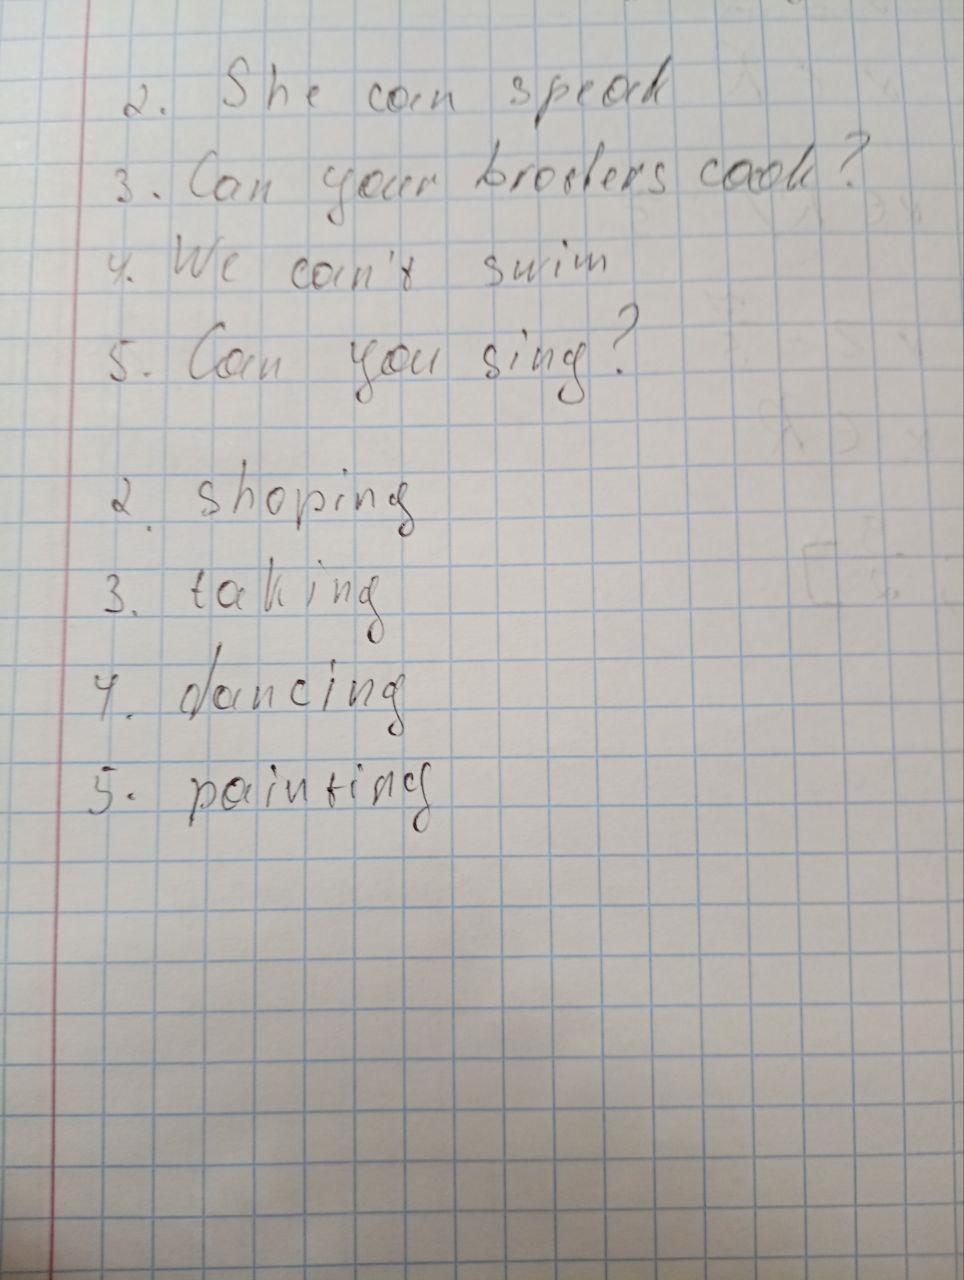 2. She can speak
3. Can your broders cook?
4. We can't swim
5. Can you sing?
2. shoping
3. taking
4. dancing
5. painting